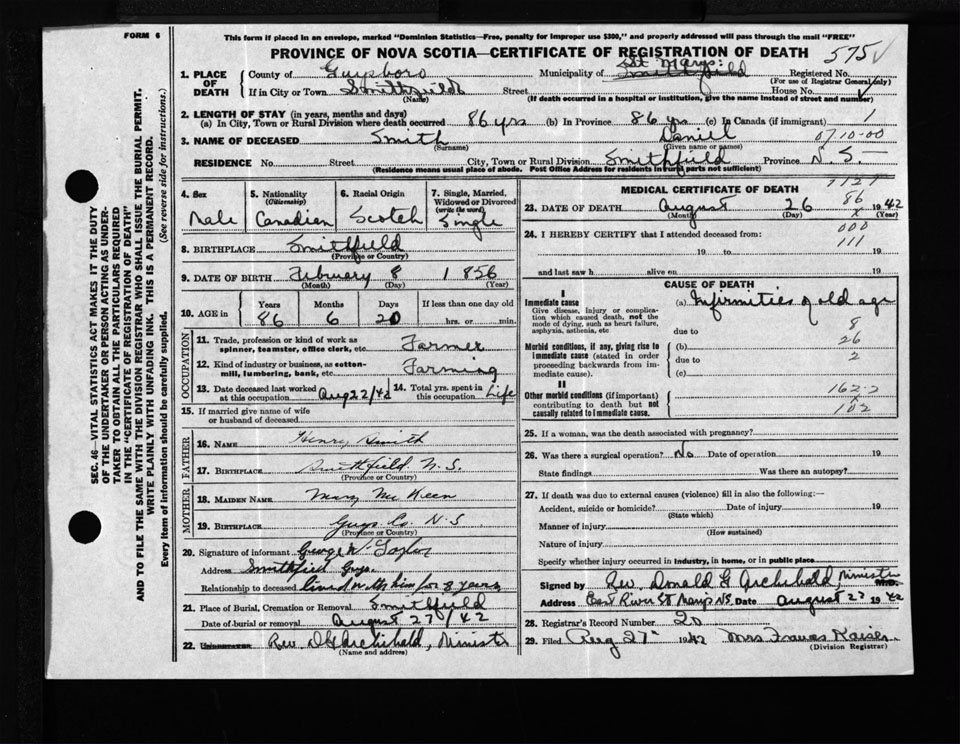 FORM 6
This form if placed in an envelope, marked "Dominion Statistics—Free, penalty for improper use $300," and properly addressed will pass through the mail "FREE"
PROVINCE OF NOVA SCOTIA—CERTIFICATE OF REGISTRATION OF DEATH
575
1. PLACE OF DEATH County of Guysboro Municipality of St Marys: Smithfield Registered No.
(For use of Registrar General only)
If in City or Town Smithfield Street House No.
(Name) (If death occurred in a hospital or institution, give the name instead of street and number)
2. LENGTH OF STAY (in years, months and days)
(a) In City, Town or Rural Division where death occurred 86 yrs (b) In Province 86 yrs (c) In Canada (if immigrant) 1
3. NAME OF DECEASED Smith Daniel 07.10-00
(Surname) (Given name or names)
RESIDENCE No. Street City, Town or Rural Division Smithfield Province N.S.
(Residence means usual place of abode. Post Office Address for residents in rural parts not sufficient)
4. Sex 5. Nationality (Citizenship) 6. Racial Origin 7. Single, Married, Widowed or Divorced (write the word)
Male Canadian Scotch Single
8. BIRTHPLACE Smithfield
(Province or Country)
9. DATE OF BIRTH February 8 1856
(Month) (Day) (Year)
10. AGE in Years Months Days If less than one day old
86 6 20 hrs. or min.
OCCUPATION
11. Trade, profession or kind of work as spinner, teamster, office clerk, etc. Farmer
12. Kind of industry or business, as cotton-mill, lumbering, bank, etc. Farming
13. Date deceased last worked at this occupation Aug 22/42 14. Total yrs. spent in this occupation Life
15. If married give name of wife or husband of deceased
FATHER
16. NAME Henry Smith
17. BIRTHPLACE Smithfield N.S.
(Province or Country)
MOTHER
18. MAIDEN NAME Mary McKeen
19. BIRTHPLACE Guys Co N.S
(Province or Country)
20. Signature of informant George W. Taylor
Address Smithfield Guys.
Relationship to deceased lived with him for 8 years
21. Place of Burial, Cremation or Removal Smithfield
Date of burial or removal August 27/42
22. UNDERTAKER Rev. D G Archibald, Minister
(Name and address)
MEDICAL CERTIFICATE OF DEATH
1127
23. DATE OF DEATH August 26 1942
86
(Month) (Day) (Year)
24. I HEREBY CERTIFY that I attended deceased from:
000
111
19 to 19
and last saw h alive on 19
CAUSE OF DEATH
I
Immediate cause (a) Infirmities of old age
Give disease, injury or complication which caused death, not the mode of dying, such as heart failure, asphyxia, asthenia, etc.
due to 8
Morbid conditions, if any, giving rise to immediate cause (stated in order proceeding backwards from immediate cause).
(b) 26
due to 2
(c)
II
Other morbid conditions (if important) contributing to death but not causally related to immediate cause.
162-2
102
25. If a woman, was the death associated with pregnancy?
26. Was there a surgical operation? No Date of operation 19
State findings Was there an autopsy?
27. If death was due to external causes (violence) fill in also the following:—
Accident, suicide or homicide? Date of injury 19
(State which)
Manner of injury
(How sustained)
Nature of injury
Specify whether injury occurred in industry, in home, or in public place
Signed by Rev. Donald G Archibald Minister
Address East River St Marys NS. Date August 27 1942
28. Registrar's Record Number 20
29. Filed Aug 27th 1942 Mrs Frances Kaiser
(Division Registrar)
SEC. 46—VITAL STATISTICS ACT MAKES IT THE DUTY
OF THE UNDERTAKER OR PERSON ACTING AS UNDER-
TAKER TO OBTAIN ALL THE PARTICULARS REQUIRED
IN THE "CERTIFICATE OF REGISTRATION OF DEATH"
AND TO FILE THE SAME WITH THE DIVISION REGISTRAR WHO SHALL ISSUE THE BURIAL PERMIT.
WRITE PLAINLY WITH UNFADING INK. THIS IS A PERMANENT RECORD.
Every item of information should be carefully supplied. (See reverse side for instructions.)